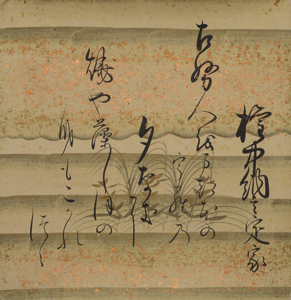 権中納言定家
古ぬ人をまつほの
うらの
夕なきに
焼や藻しほの
身もこかれ
つゝ